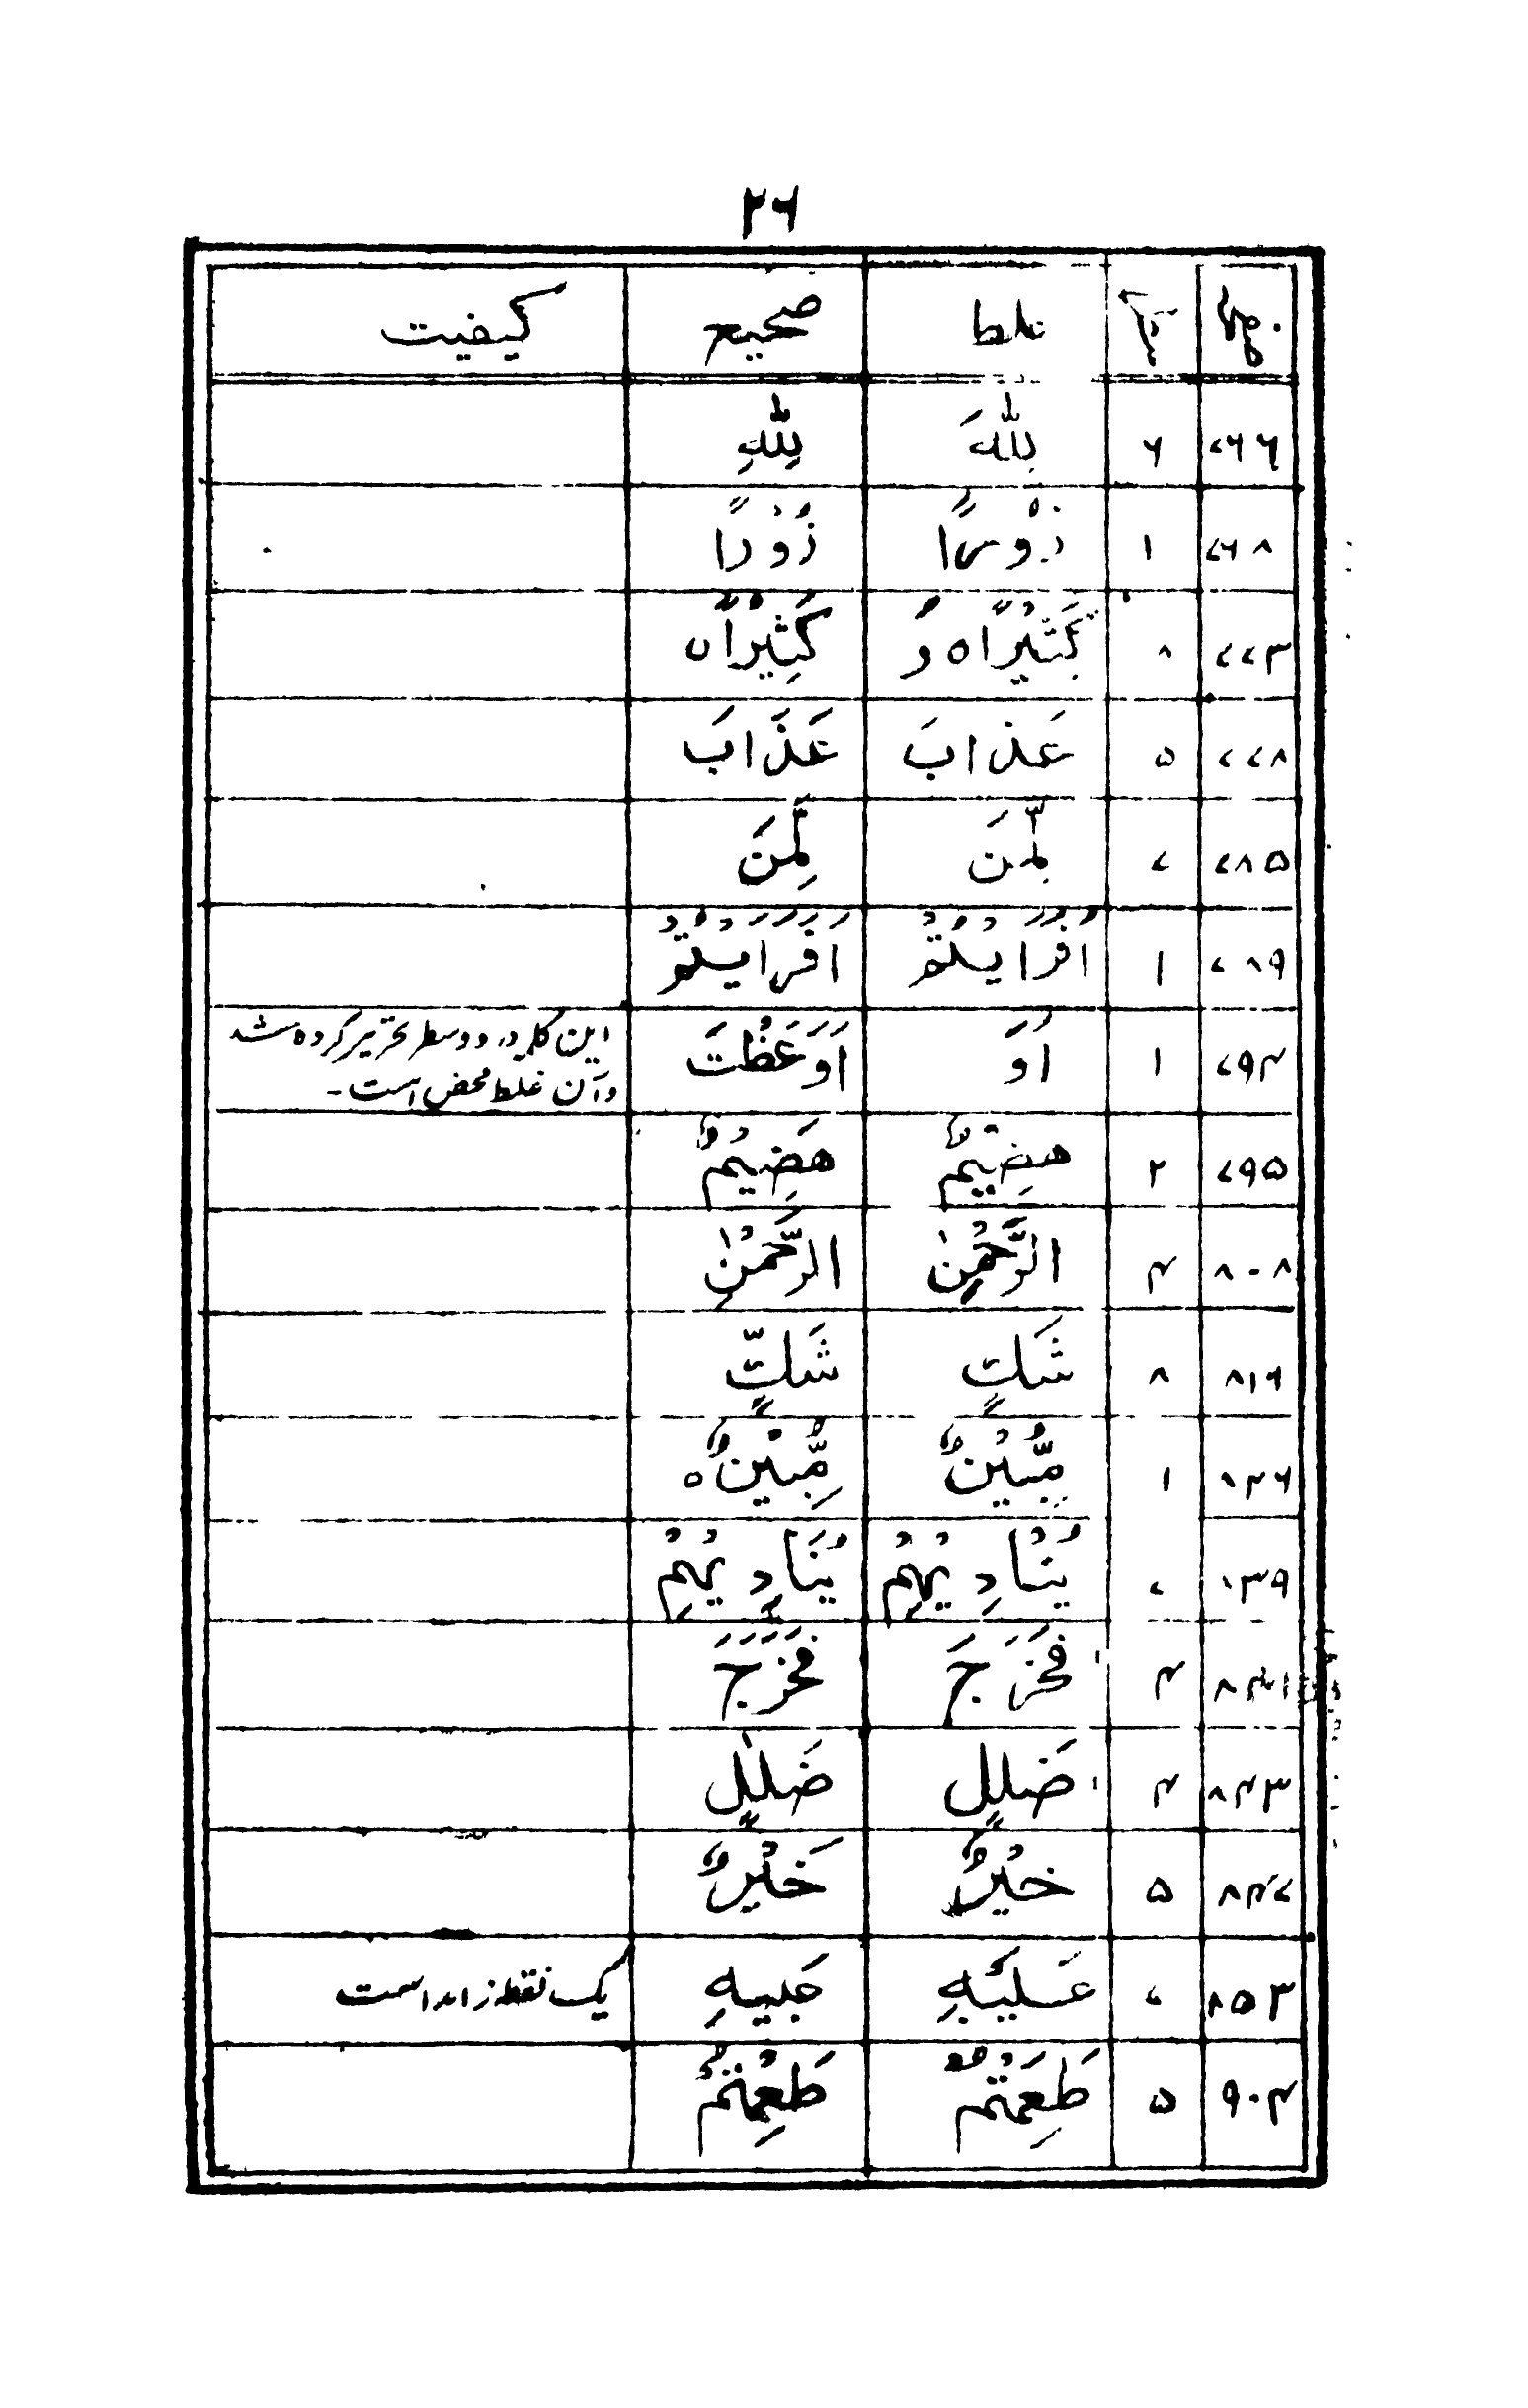 ۲۶
صفحہ سطر غلط صحیح کیفیت
۷۶۶ ۶ لِلّٰهَ لِلّٰهِ
۷۶۸ ۱ زُوْرًا زُوْرًا
۷۷۳ ۸ كَثِيْرًا ہ وَ كَثِيْرًا ہ
۷۷۸ ۵ عَذابَ عَذَابَ
۷۸۵ ۷ لَّمِنَ لَّمِنَ
۷۸۹ ۱ اَفَرَايْتُمْ اَفَرَايْتُمْ
۷۹۴ ۱ اَوَ اَوَعَظْتَ این کلمہ در دو سطر تحریر کردہ شد
و آن غلط محض است۔
۷۹۵ ۲ هضِيْمٌ هَضِيْمٌ
۸۰۸ ۴ الرَّحْمٰنِ الرَّحْمٰنِ
۸۱۶ ۸ شَكٍ شَكٍّ
۸۲۶ ۱ مُّبِيْنٌ مُّبِيْنٌ ہ
۸۳۹ ۷ يُنْادِيْهِمْ يُنَادِيْهِمْ
۸۴۱ ۴ فَخَرَجَ فَخَرَجَ
۸۴۳ ۴ ضَللٍ ضَلٰلٍ
۸۴۷ ۵ خيْرٌ خَيْرٌ
۸۵۳ ۷ عَلَيْهِ یک نقطہ زاید است
۹۰۴ ۵ طَعِمْتُمْ طَعِمْتُمْ